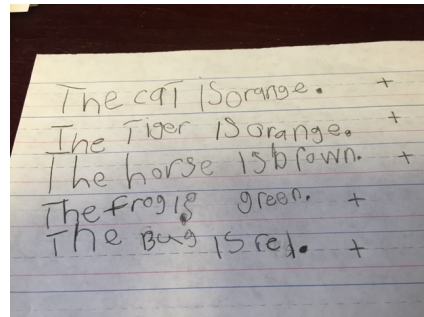 The caT ISorange. +
The Tiger IS orange. +
The horse Isbrown. +
The frog is green. +
The Bug IS red. +